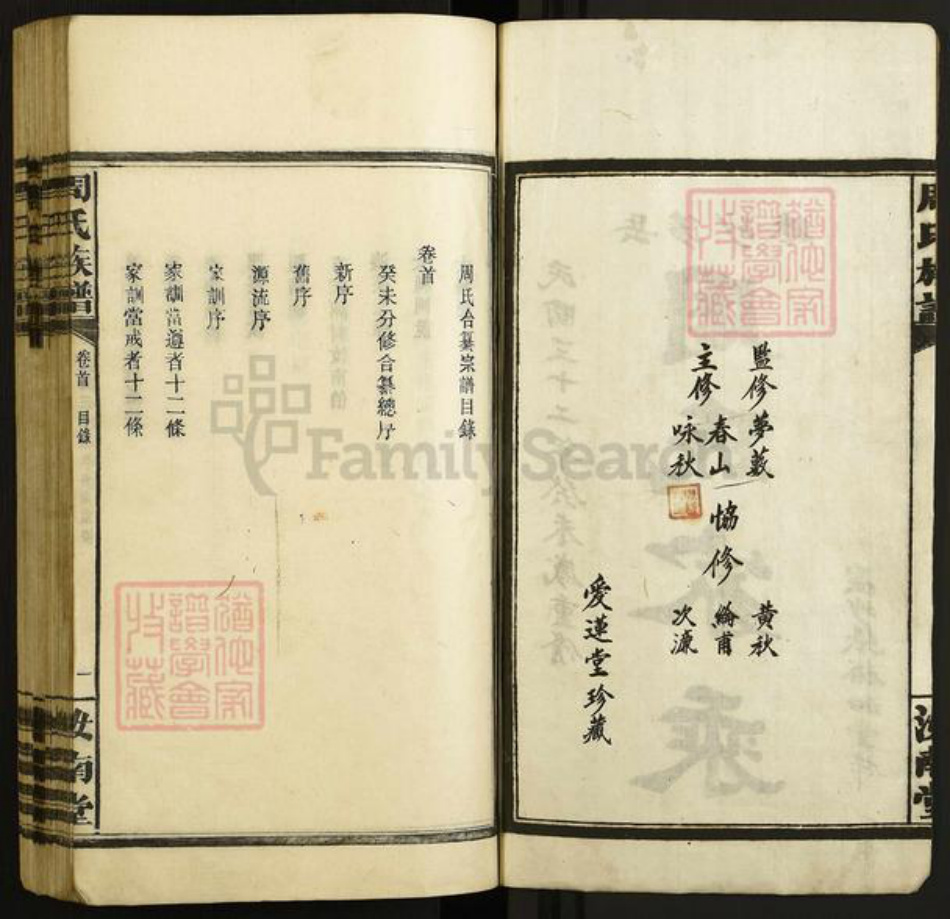 周氏族譜
汝南堂
監修夢薮
主修
春山
咏秋
協修
黄秋
綸甫
次濂
愛蓮堂珍藏
猶他家
譜學會
收藏
周氏合纂宗譜目錄
卷首
癸未分修合纂總序
新序
舊序
源流序
家訓序
家訓當遵者十二條
家訓當戒者十二條
周氏族譜
卷首
目錄
一
汝南堂
猶他家
譜學會
收藏
FamilySearch